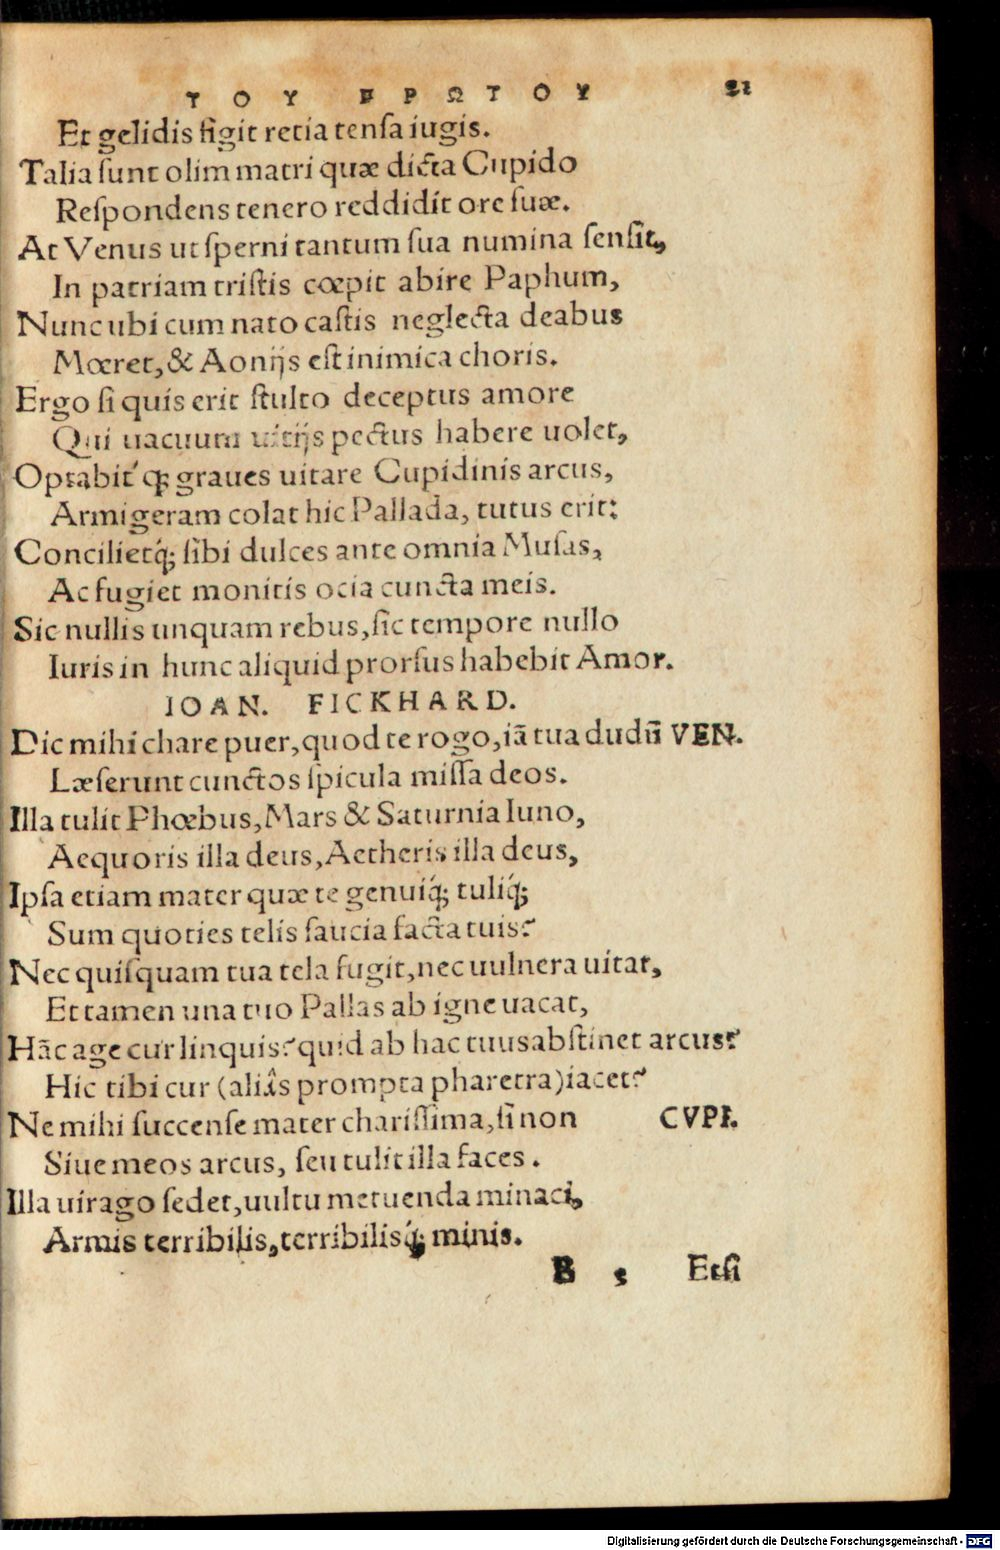 ΤΟΥ ΠΡΩΤΟΥ 21
Et gelidis figit retia tensa iugis.
Talia sunt olim matri quæ dicta Cupido
Respondens tenero reddidit ore suæ.
At Venus ut sperni tantum sua numina sensit,
In patriam tristis cœpit abire Paphum,
Nunc ubi cum nato castis neglecta deabus
Mœret, & Aonijs est inimica choris.
Ergo si quis erit stulto deceptus amore
Qui uacuum uitijs pectus habere uolet,
Optabitꝙ graues uitare Cupidinis arcus,
Armigeram colat hic Pallada, tutus erit:
Concilietq́; sibi dulces ante omnia Musas,
Ac fugiet monitis ocia cuncta meis.
Sic nullis unquam rebus, sic tempore nullo
Iuris in hunc aliquid prorsus habebit Amor.
IOAN. FICKHARD.
Dic mihi chare puer, quod te rogo, iā tua dudū VEN.
Læserunt cunctos spicula missa deos.
Illa tulit Phœbus, Mars & Saturnia Iuno,
Aequoris illa deus, Aetheris illa deus,
Ipsa etiam mater quæ te genuiq́; tuliq́;
Sum quoties telis saucia facta tuis?
Nec quisquam tua tela fugit, nec uulnera uitat,
Et tamen una tuo Pallas ab igne uacat,
Hāc age cur linquis? quid ab hac tuus abstinet arcus?
Hic tibi cur (aliâs prompta pharetra) iacet?
Ne mihi succense mater charissima, si non CVPI.
Siue meos arcus, seu tulit illa faces.
Illa uirago sedet, uultu metuenda minaci,
Armis terribilis, terribilisq́; minis.
B 5 Etsi
Digitalisierung gefördert durch die Deutsche Forschungsgemeinschaft - DFG